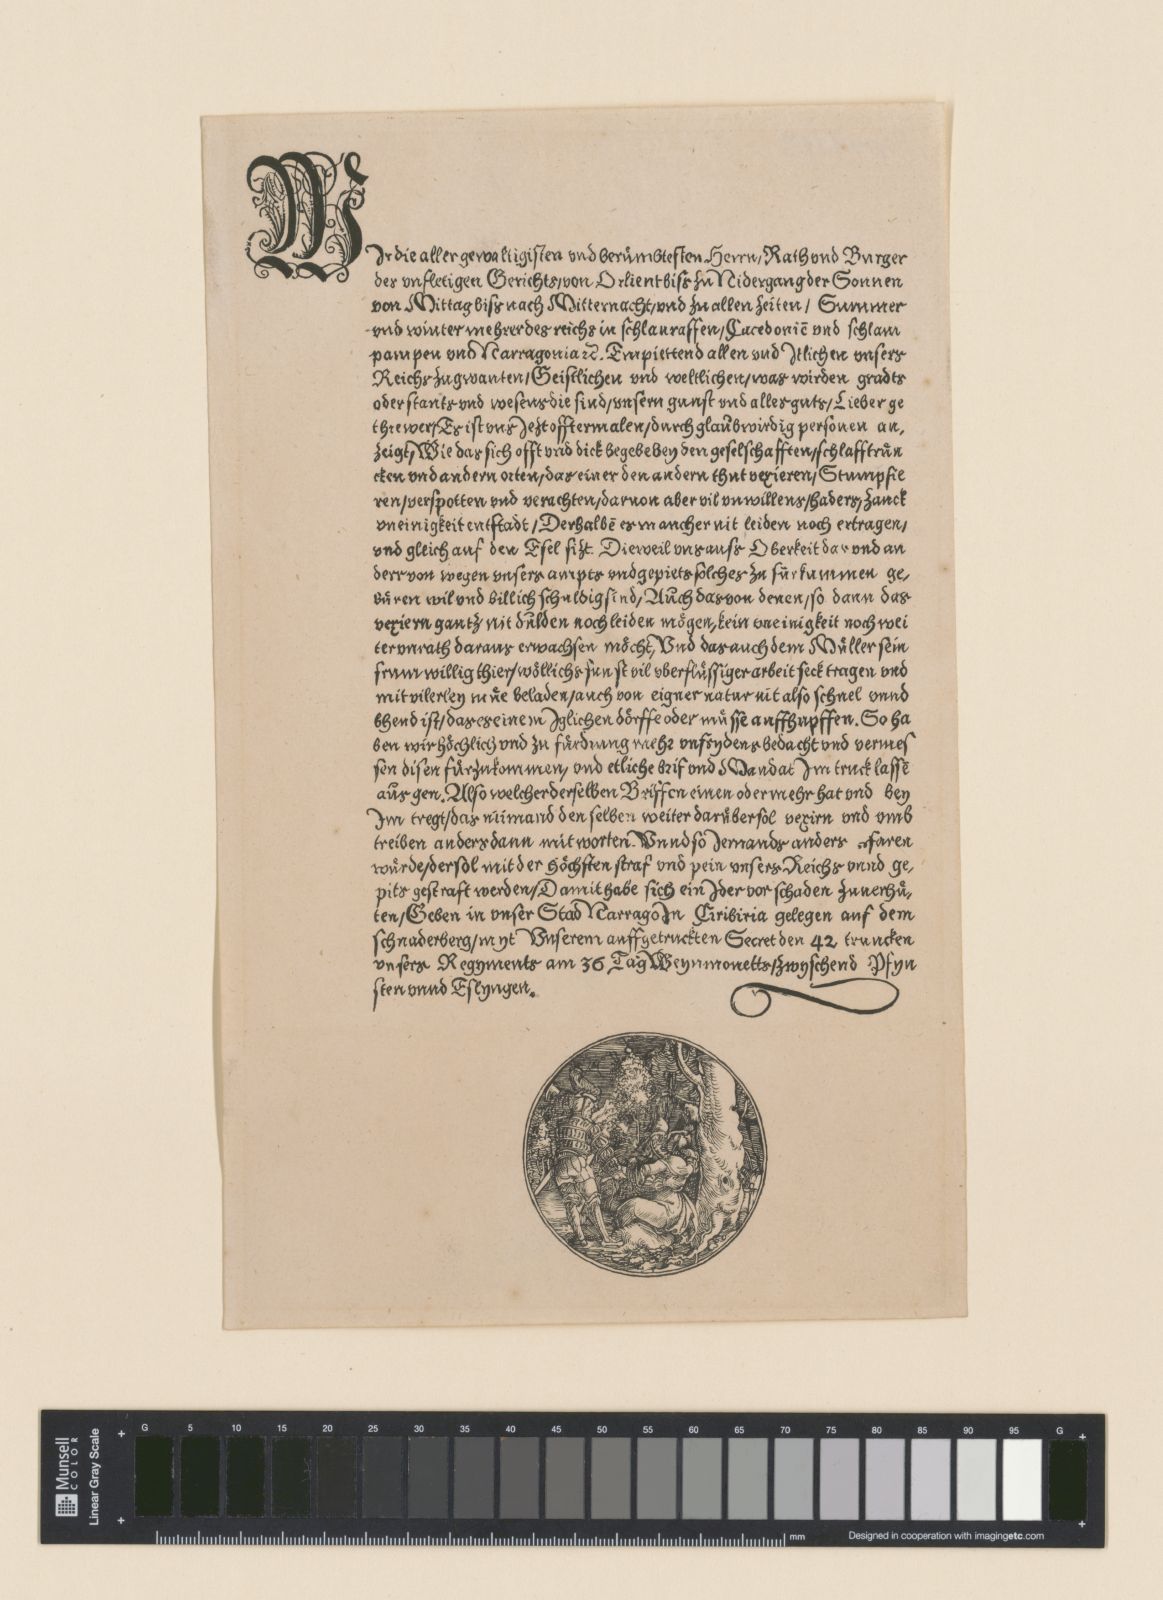 WIr die aller gewaltigisten vnd berümbtesten Herrn/ Rath vnd Burger
des vnfletigen Gerichts/ von Orlient biss zu Nidergang der Sonnen
von Mittag biss nach Mitternacht/ vnd zu allen zeiten/ Summer
vnd winter mehrer des reichs in schlauraffen/ Cacedoniē vnd schlam
pampen vnd Narragonia ꝛc. Empiettend allen vnd Jtlichen vnsers
Reichs zugwanten/ Geistlichen vnd weltlichen/ was wirden gradts
oder stants vnd wesens die sind/ vnsern gunst vnd alles guts/ Lieber ge
threwer/ Es ist vns Jezt offtermalen/ durch glaubwirdig personen an,
zeigt/ Wie das sich offt vnd dick begebe bey den geselschafften/ schlafftrün
cken vnd andern orten/ das einer den andern thut vexieren/ Stumpfie
ren/ verspotten vnd verachten/ daruon aber vil vnwillens/ haders, zanck
vneinigkeit entstadt/ Derhalbē es mancher nit leiden noch ertragen/
vnd gleich auf den Esel sizt. Dieweil vns auss Oberkeit das vnd an
derr von wegen vnsers ampts vnd gepiets solches zu fürkummen ge,
büren wil vnd billich schuldig sind/ Auch das von denen/ so dann das
vexiern gantz nit dulden noch leiden mögen, kein vneinigkeit noch wei
ter vnrath daraus erwachsen möcht, Vnd das auch dem Müller sein
frum willig thier/ wöllichs sunst vil vberflüssiger arbeit seck tragen vnd
mit vilerley müe beladen/ auch von eigner natur nit also schnel vnnd
bhend ist/ das es einem Jglichen dörffe oder müsse auffhupffen. So ha
ben wir höchlich vnd zu fürdrung mehr vnfrydens bedacht vnd vermes
sen disen fürzukommen, vnd etliche brif vnd Mandat Jm truck lassē
aus gen. Also welcher derselben Briffen einen oder mehr hat vnd bey
Jm tregt/ das niimand den selben weiter darüber sol vexirn vnd vmb
treiben anders dann mit worten. Vnnd so Jemands anders faren
würde/ der sol mit der höchsten straf vnd pein vnsers Reichs vnnd ge,
pits gestraft werden/ Damit habe sich ein Jder vor schaden zuuerhü,
ten/ Geben in vnser Stad Narrago Jn Ciribiria gelegen auf dem
schnaderberg/ myt Vnserem auffgetruckten Secret den 42 truncken
vnsers Regyments am 36 Tag Weynmonetts/ zwyschend Pfyn
sten vnnd Eslyngen.
Munsell
COLOR
Linear Gray Scale
G 5 10 15 20 25 30 35 40 45 50 55 60 65 70 75 80 85 90 95 G
mm
Designed in cooperation with imagingetc.com